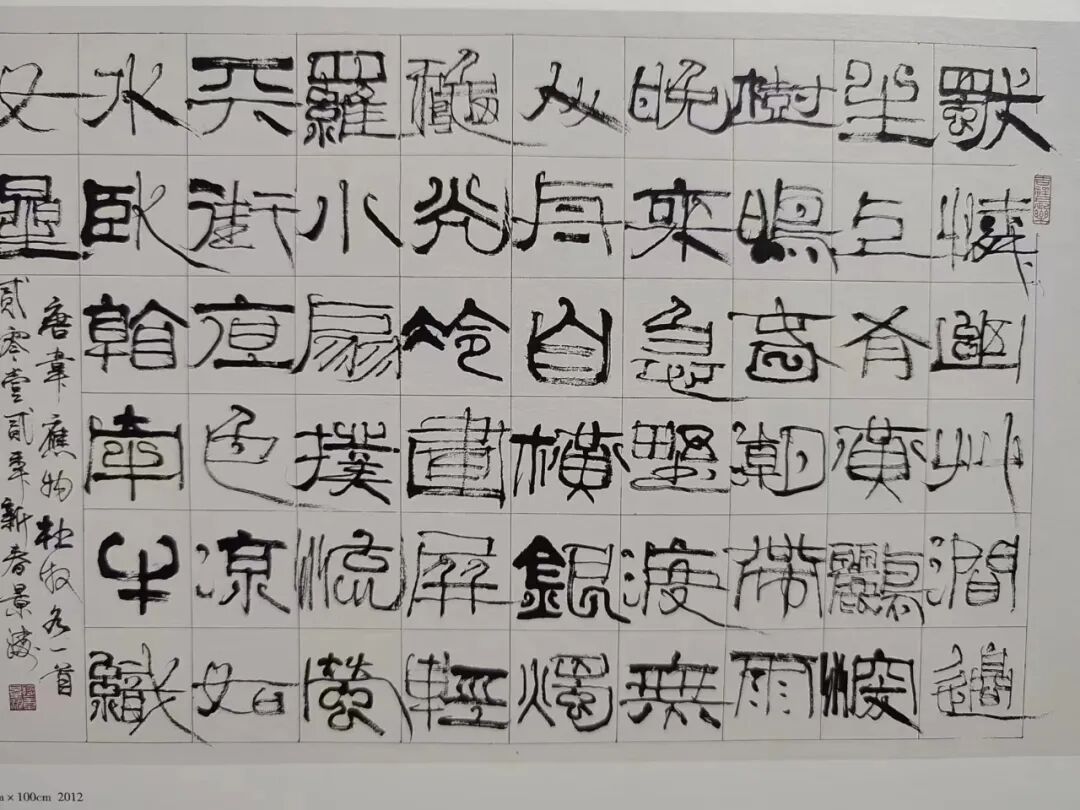 獨憐幽艸澗邊
生上有黃鸝深
樹鳴春潮帶雨
晚來急野渡無
人舟自橫銀燭
秋光冷畫屏輕
羅小扇撲流螢
天街夜色涼如
水臥看牽牛織
女星
唐韋應物杜牧各一首
貳零壹貳年新春景
× 100cm 2012